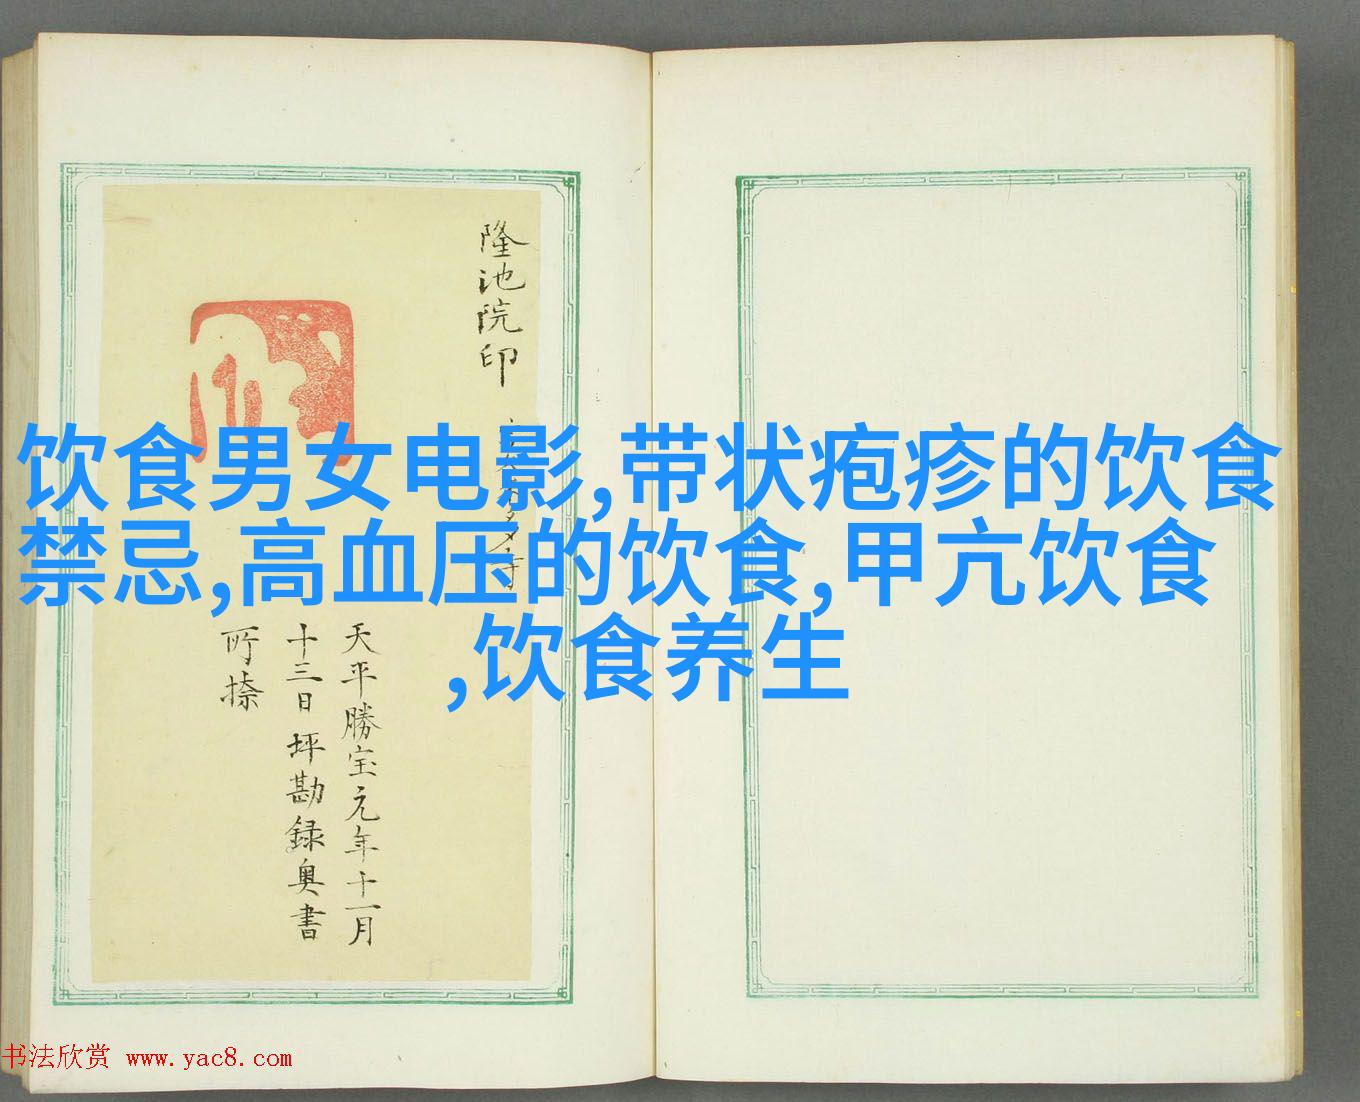 隆池院印
天平勝宝元年十一月
十三日 坪勘録奥書
所捺
饮食男女电影,带状疱疹的饮食
禁忌,高血压的饮食,甲亢饮食
,饮食养生
书法欣赏 www.yac8.com